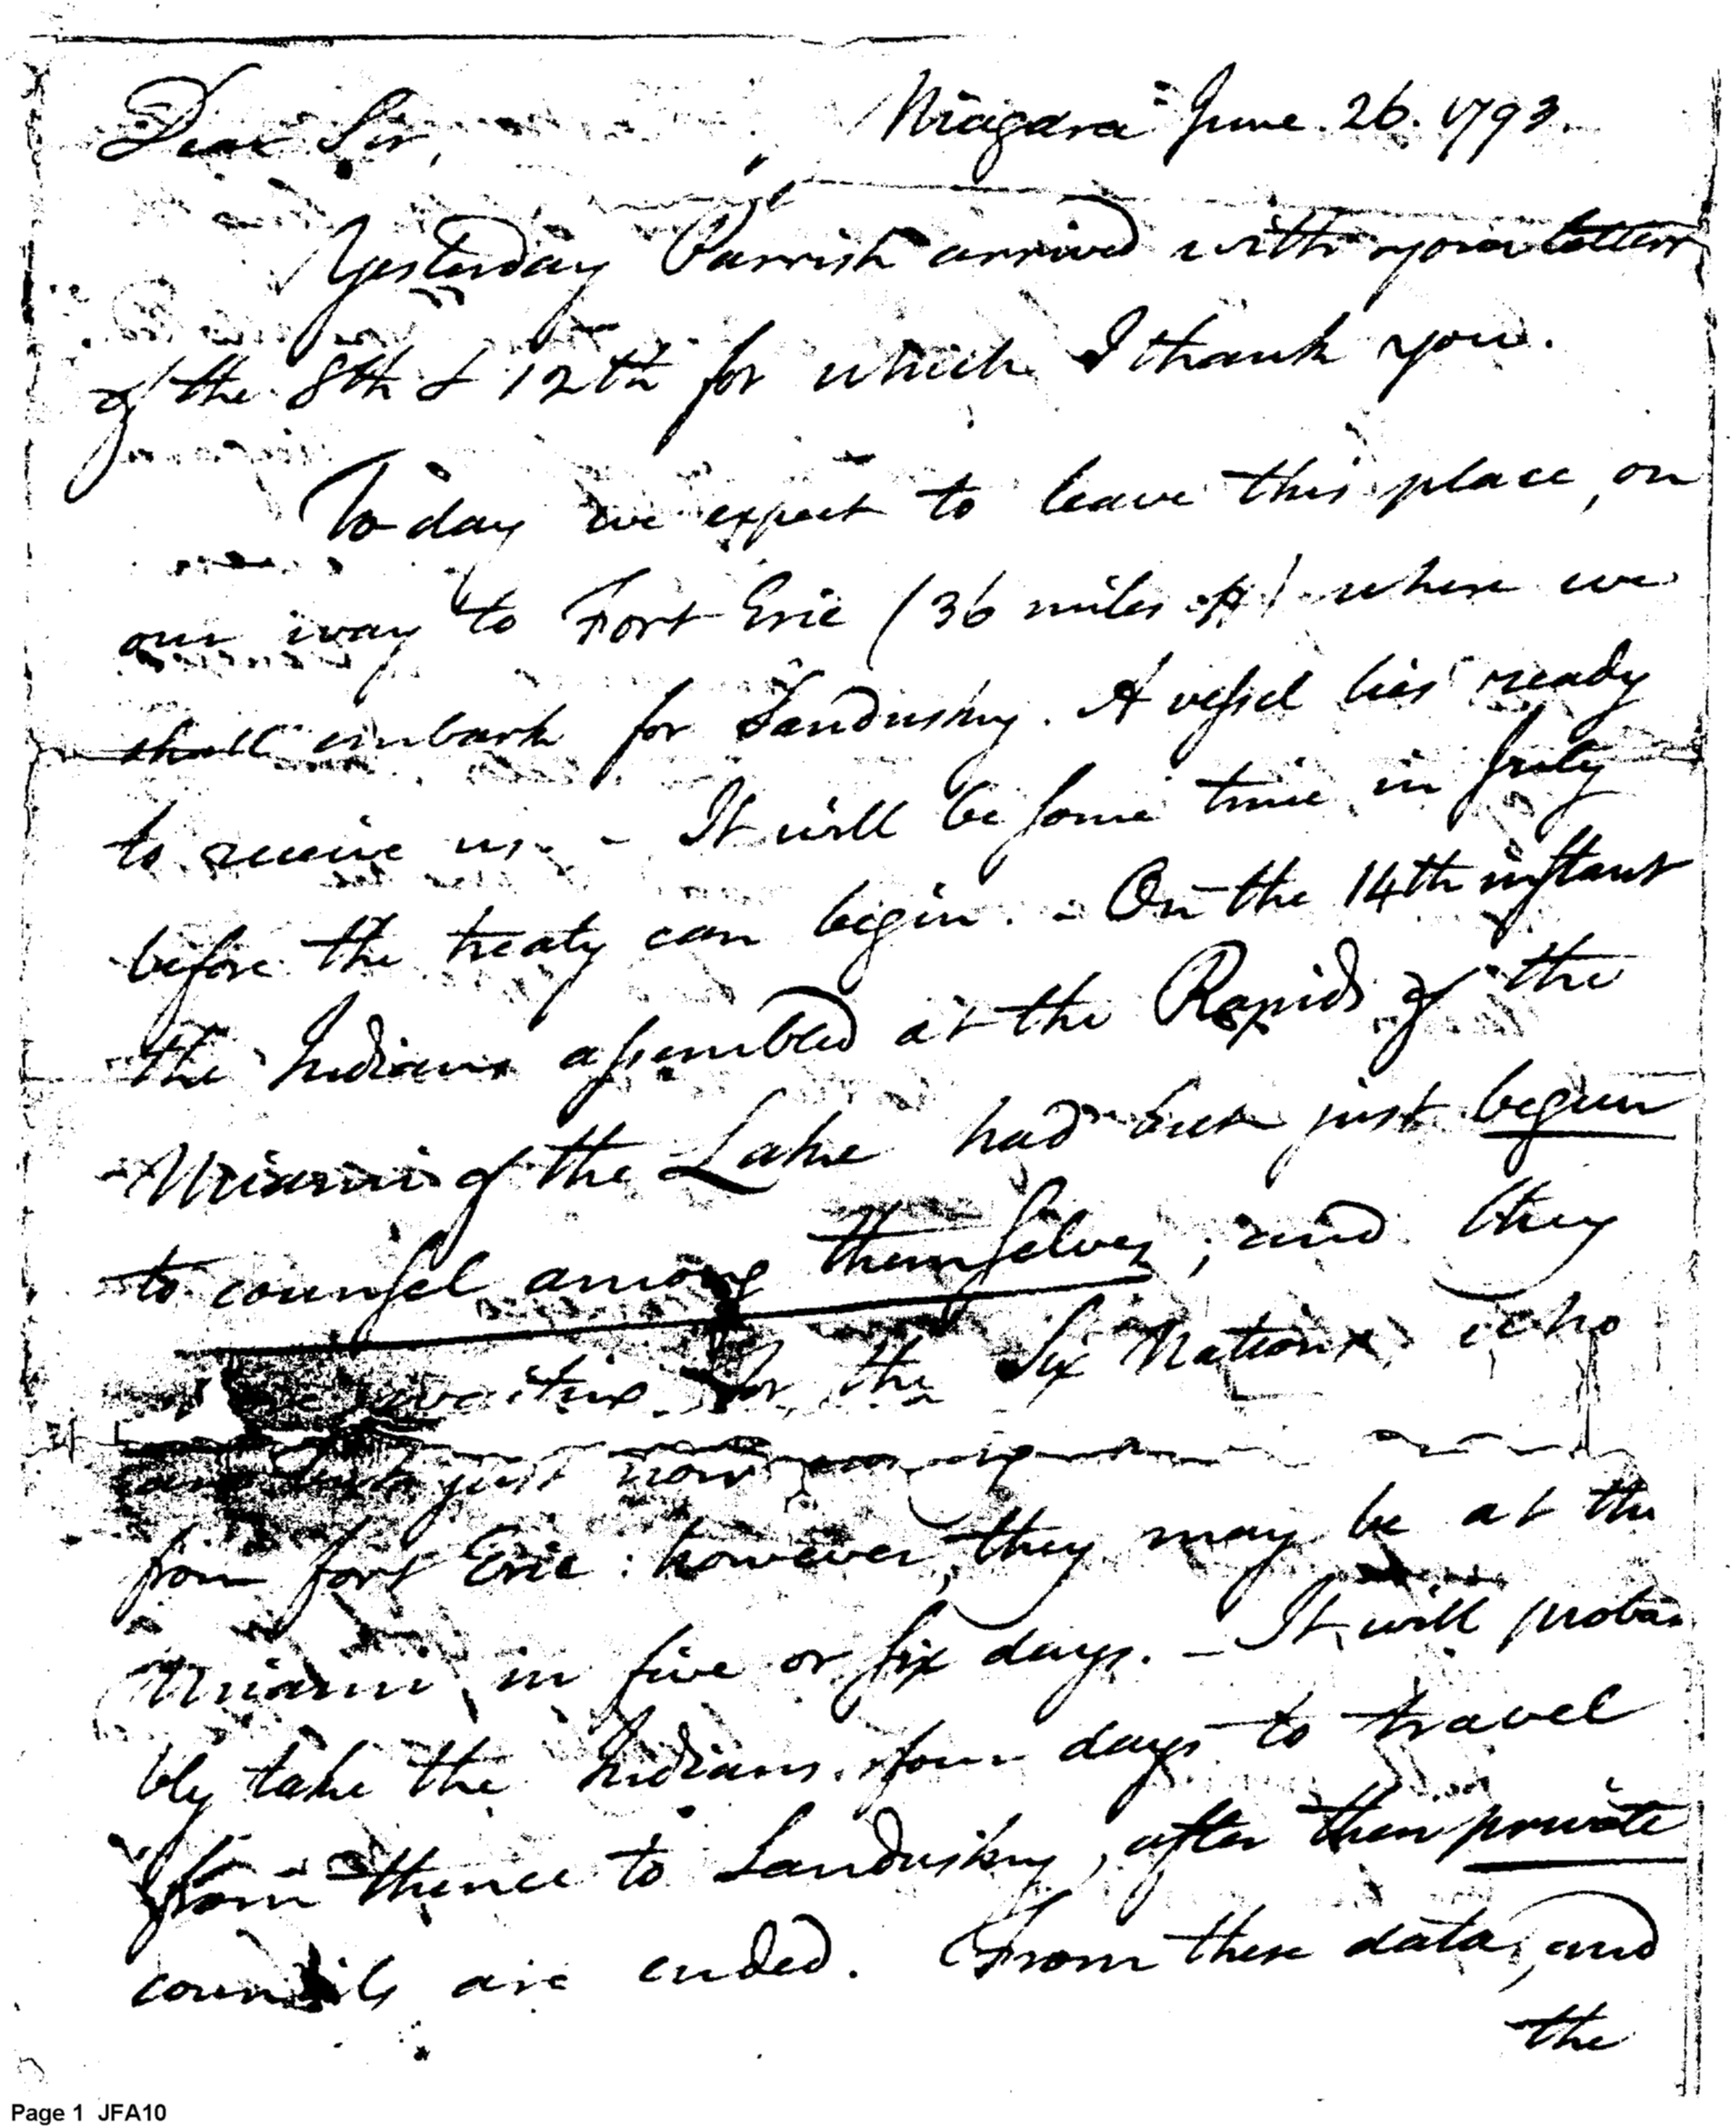 Niagara June 26. 1793.
Dear Sir,
Yesterday Parrish arrived with your letters
of the 8th & 12th for which I thank you.
To day we expect to leave this place, on
our way to Fort Erie (36 miles off) where we
shall embark for Sandusky. A vessel lies ready
to receive us. - It will be some time in July
before the treaty can begin. - On the 14th instant
the Indians assembled at the Rapids of the
Miami of the Lake had but just begun
to counsel among themselves; and they
waiting for the Six Nations, who
are but just now
from fort Erie: however, they may be at the
Miami in five or six days. - It will proba-
bly take the Indians four days to travel
from thence to Sandusky, after their private
councils are ended. From these data, and
the
Page 1 JFA10